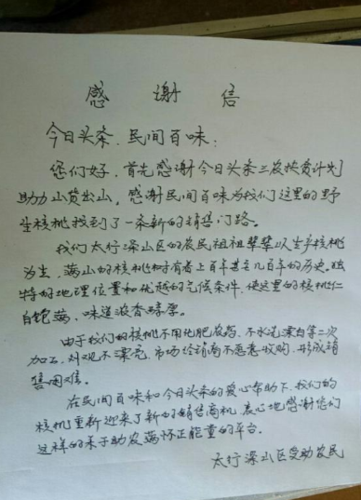 感谢信
今日头条、民间百味：
您们好，首先感谢今日头条三农扶贫计划
助力山货出山，感谢民间百味为我们这里的野
生核桃找到了一条新的销售门路。
我们太行深山区的农民祖祖辈辈以生产核桃
为生，满山的核桃树有着上百年甚至几百年的历史。独
特的地理位置和优越的气候条件，使这里的核桃仁
白饱满，味道浓香醇厚。
由于我们的核桃不用化肥农药，不水洗漂白等二次
加工，外观不漂亮，市场经销商不愿意收购，形成销
售困难。
在民间百味和今日头条的爱心帮助下，我们的
核桃重新迎来了新的销售商机，衷心地感谢您们
这样的乐于助农满怀正能量的平台。
太行深山区受助农民